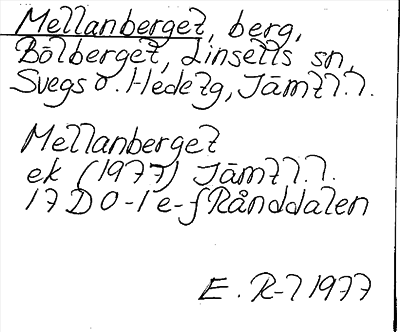 Mellanberget, berg,
Bölberget, Linsells sn,
Svegs o. Hede tg, Jämtl. l.
Mellanberget
ek (1977) Jämtl. l.
17 D 0-1 e-f Rånddalen
E. R-l 1977